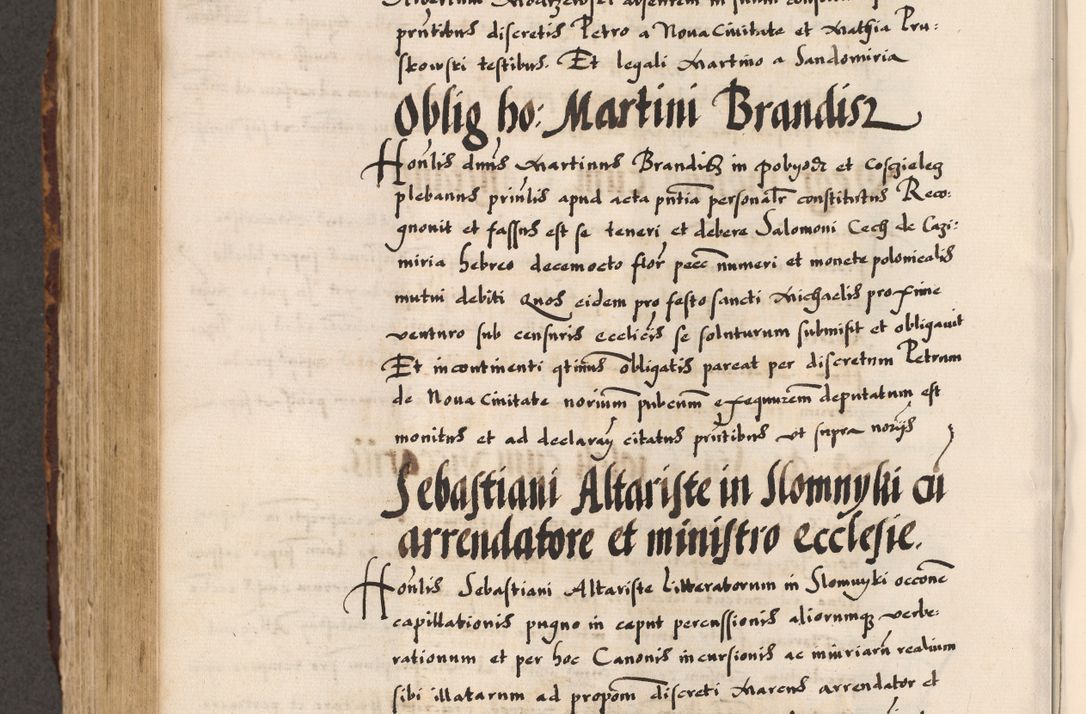 prntibus discretis Petro a Noua Ciuitate et Mathia Pru-
skowski testibus. Et legali Martino a Sandomiria
Oblig ho: Martini Brandisz
Honlis dnus Martinus Brandisz in pobyodz et Coscieleg
plebanus prinlis apud acta pntia personalr constitutus Reco-
gnouit et fassus est se teneri et debere Salomoni Cech de Cazi-
miria hebreo decemocto flor pecc numeri et monete polonicalis
mutui debiti Quos eidem pro festo sancti Michaelis proxime
venturo sub censuris ecclicis se soluturum submisit et obligauit
Et incontinenti qtinus obligatis pareat per discretum Petrum
de Noua Ciuitate norium pubcum exequutem deputatum est
monitus et ad declaray citatus prntibus vt supra norijs
Sebastiani Altariste in Slomnyki cu
arrendatore et ministro ecclesie.
Honlis Sebastiani Altariste Litteratorum in Slomnyki occone
capillationis pugno in caput percussionis aliorumq verbe-
rationum et per hoc Canonis incursionis ac iniuriaru realium
sibi illatarum ad propom discreti Marcus arrendator et